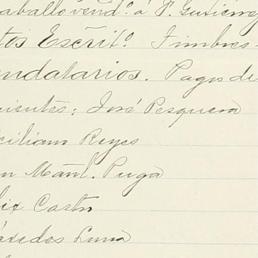 aballo vend.º á P. Gutierrez
tos Escrit.º Timbres
endatarios. Pagos de
uisutes; José Pesquera
ciliam Reyes
n Man.l Puga
lix Castro
Luna